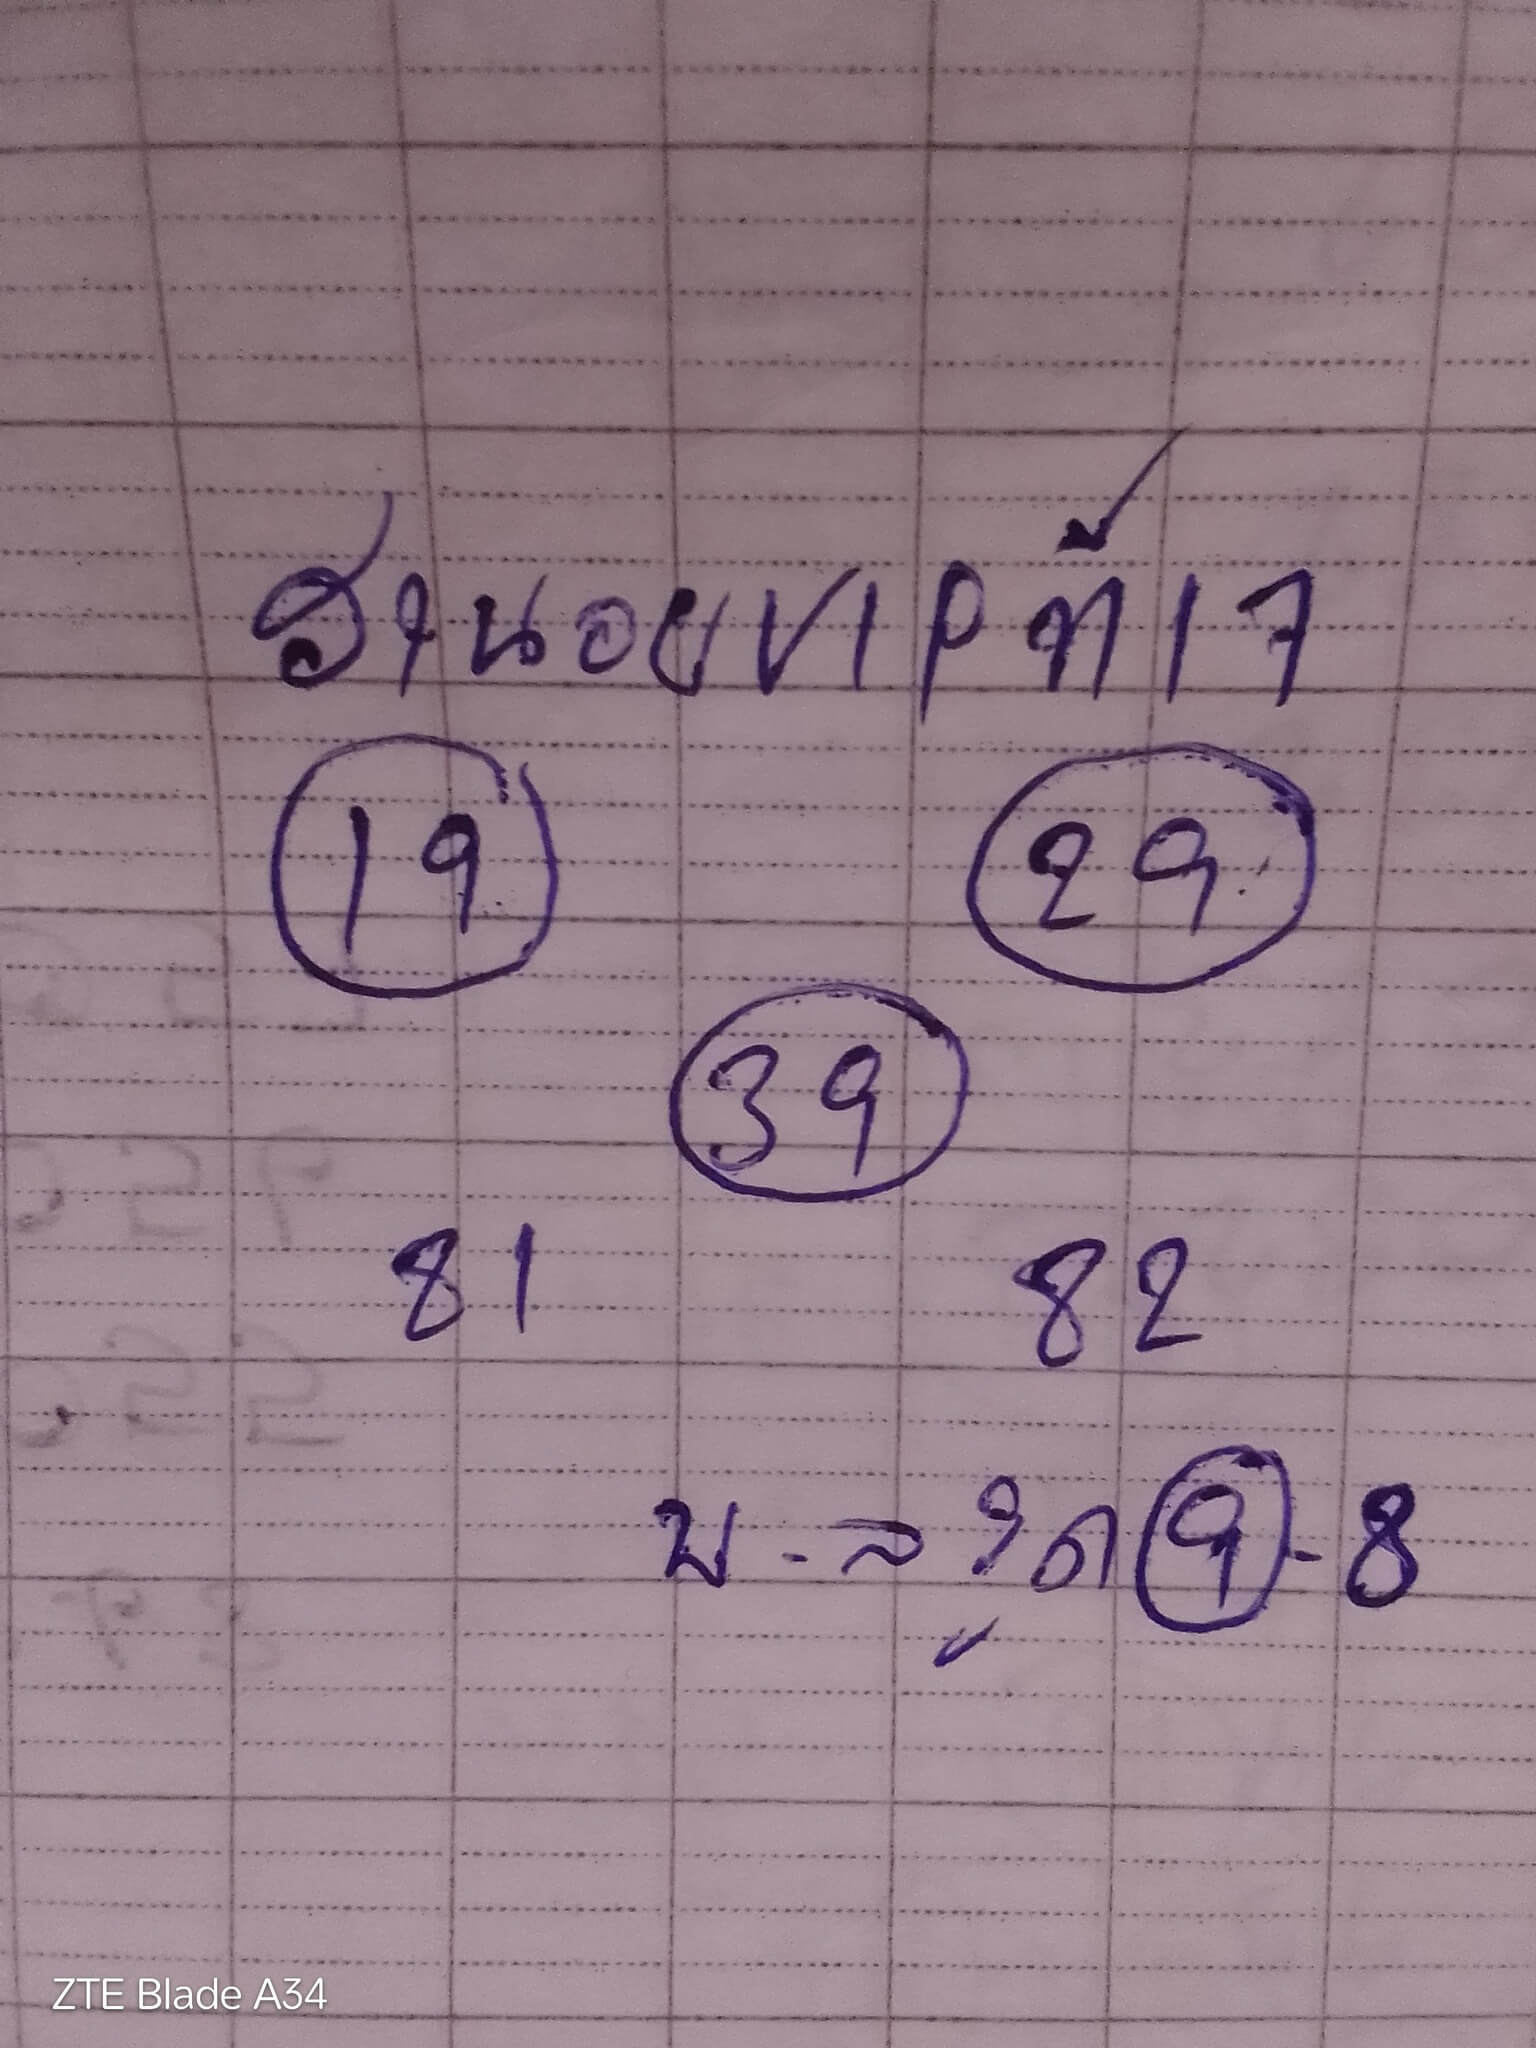 ฮานอยVIPที่17
19 29
39
81 82
บ-ล รูด 9-8
ZTE Blade A34